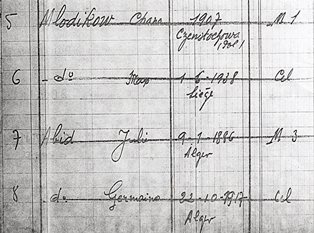 5 Mlodikow Chana 1907 M 1
Czenstochowa (Pol)
6 - do Max 1-5-1938 Cel
Liège
7 Abid Julie 9-1-1886 M 3
Alger
8 - do Germaine 22-10-1917 Cel
Alger